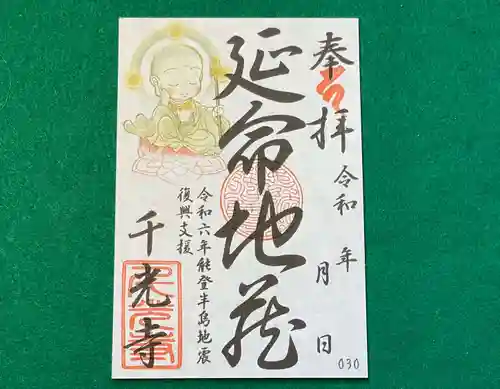 奉拝
令和 年 月 日
延命地蔵
令和六年能登半島地震
復興支援
千光寺
030